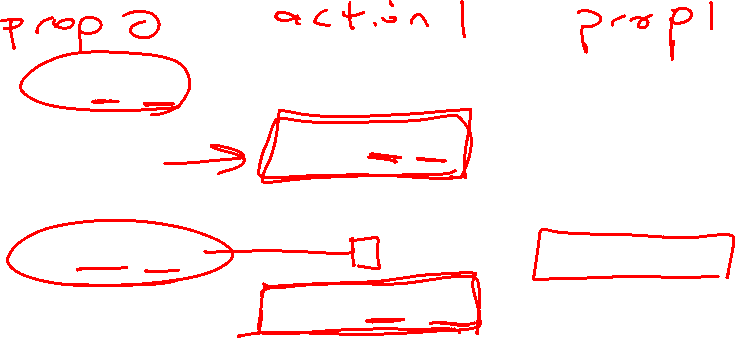 prop 0 action 1 prop 1